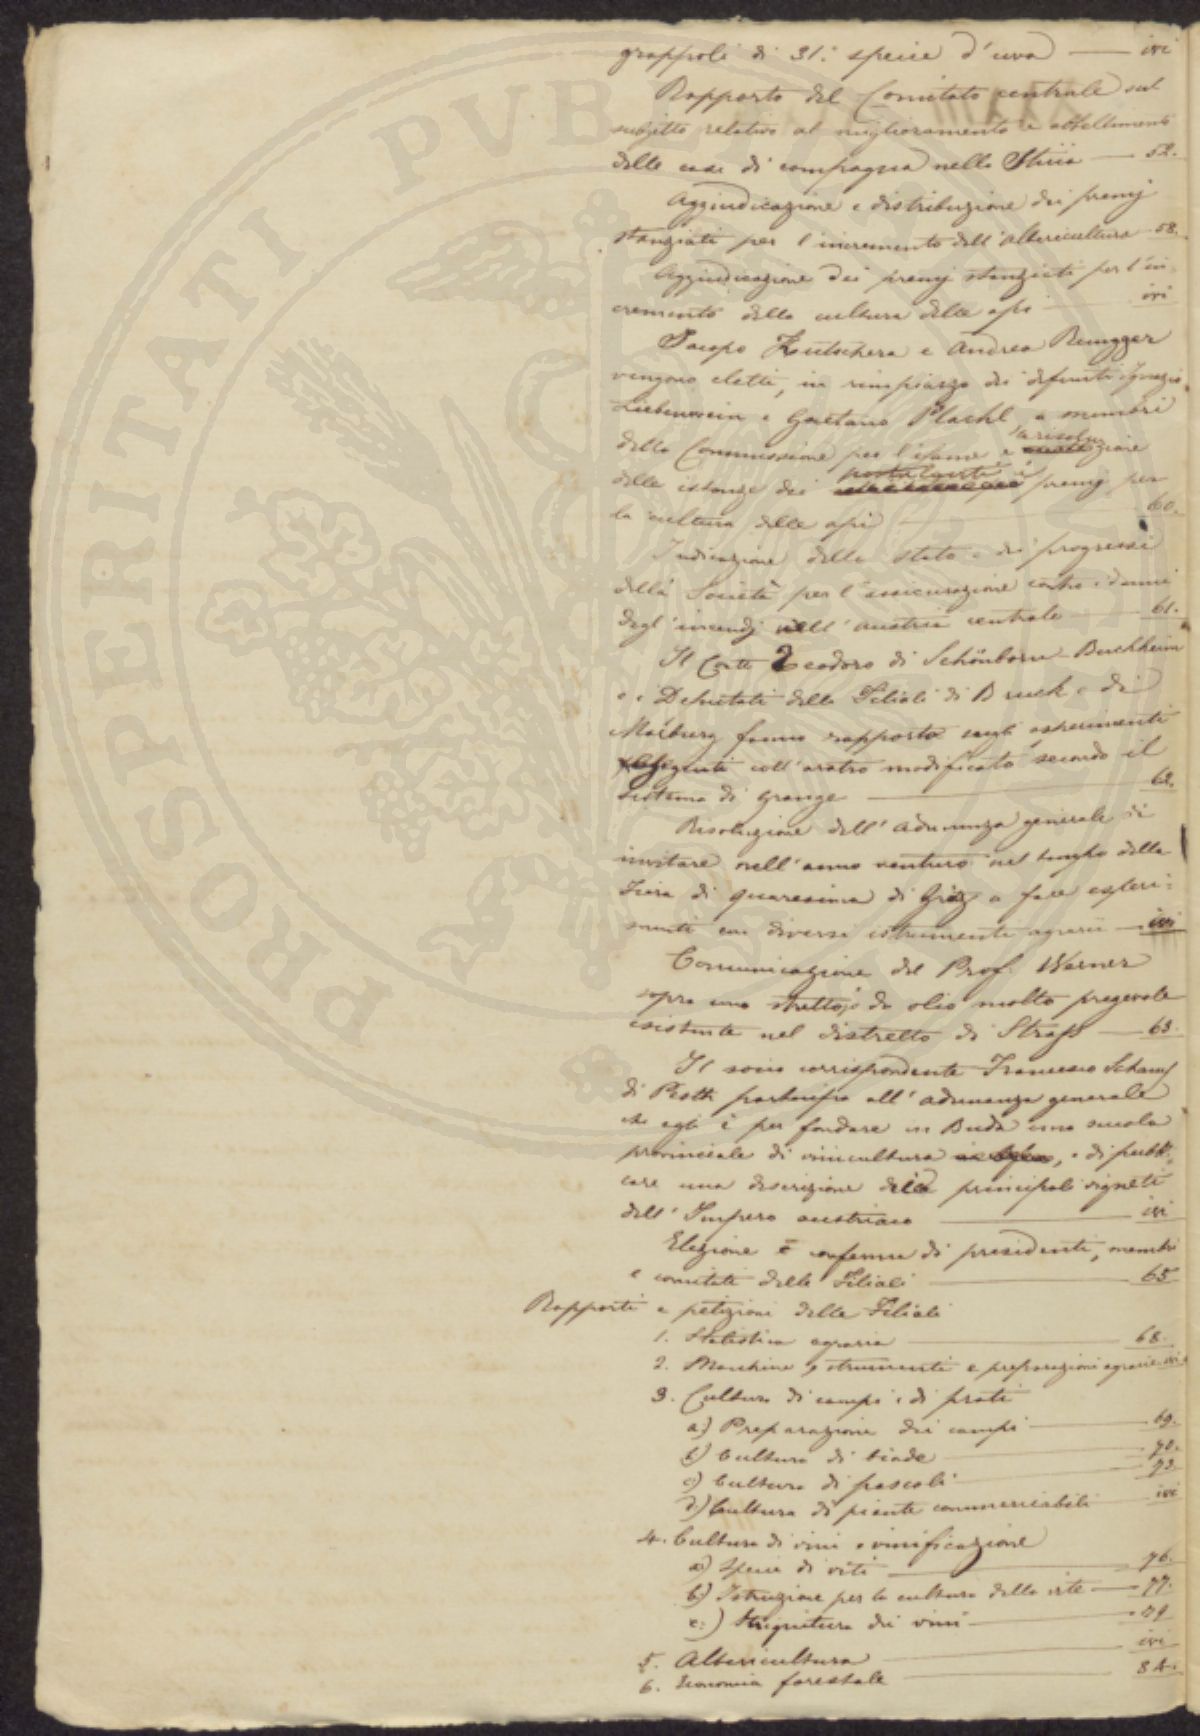 grappoli di 31. specie d'uva — ivi
Rapporto del Comitato centrale sul
subjetto relativo al miglioramento e abbellimento
delle case di campagna nella Stiria — 52.
Aggiudicazione e distribuzione dei premj
stanziati per l'incremento dell'albericultura — 58.
Aggiudicazione dei premj stanziati per l'in
cremento della cultura delle api — ivi
Jacopo Kutschera e Andrea Rungger
vengono eletti, in rimpiazzo dei defunti Ignazio
Liebenwein e Gaetano Plachl, a membri
della Commissione per l'esame e
delle istanze dei postulanti i premj per
la cultura delle api — 60.
Indicazione dello stato e dei progressi
della Società per l'assicurazione contro i danni
degl'incendj nell'Austria centrale — 61.
Il Conte Teodoro di Schönborn-Buchheim
e i Deputati delle Filiali di Bruck e di
Marburg fanno rapporto sugli esperimenti
eseguiti coll'aratro modificato secondo il
sistema di Grange — 62.
Risoluzione dell'adunanza generale di
invitare nell'anno venturo nel tempo della
Fiera di quaresima di Grätz a fare esperi:
menti con diversi istrumenti agrarii — ivi
Comunicazione del Prof. Werner
sopra uno strettojo da olio molto pregevole
esistente nel distretto di Strass — 63.
Il socio corrispondente Francesco Schams
di Pesth partecipa all'adunanza generale
che egli è per fondare in Buda una scuola
provinciale di vinicultura, e di pubbli:
care una descrizione dei principali vigneti
dell'Impero austriaco — ivi
Elezione e conferme di presidenti, membri
e comitati delle Filiali — 65
Rapporti e petizioni delle Filiali
1. Statistica agraria — 68.
2. Macchine, strumenti e preparazioni agrarie ivi
3. Cultura di campi e di prati
a) Preparazione dei campi — 69.
b) Cultura di biade — 70.
c) Cultura di pascoli — 73.
d) Cultura di piante commerciabili — ivi
4. Cultura di vini e vinificazione
a) Specie di viti — 76.
b) Istruzione per la cultura della vite — 77.
c.) Strignitura dei vini — 79
5. Albericultura — ivi
6. Economia forestale — 84.
PROSPERITATI PUBLICAE